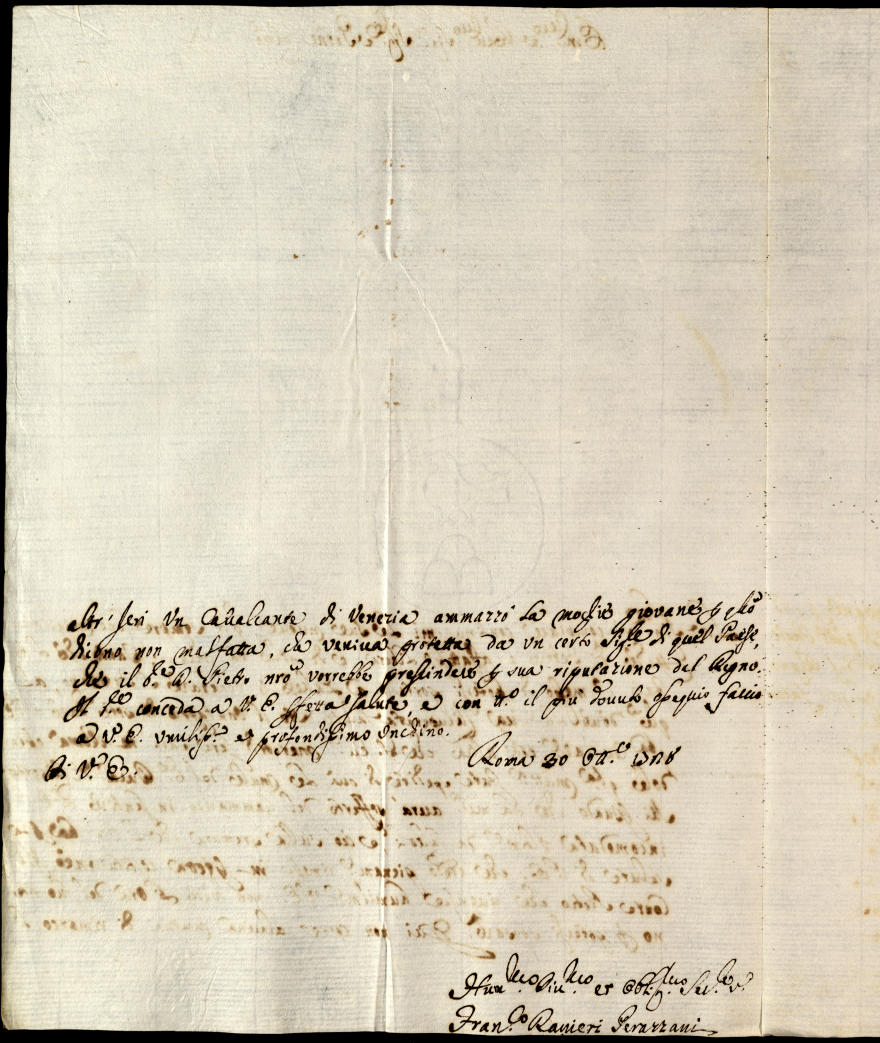 altr'Jeri un Cavalcante di Venezia ammazzò la moglie giovane, e p quanto
dicono non malfatta, che veniva protetta da un certo Sig.re di quel Paese,
che il D. Pietro nrō vorrebbe prescindere p sua riputazione dal Regno.
Il conceda a V. E. perfetta salute, e con tt.o il più dovuto ossequio faccio
a V. E. umiliss.o e profondissimo inchino.
Di V. E.
Roma 30 Ott.e
Hum.mo Div.mo et Obblig.mo Ser.re
Fran.co Ranieri Perazzani